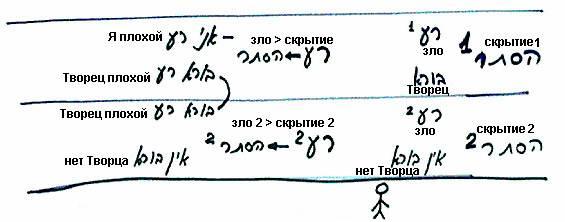 Я плохой אני רע – зло > скрытие רע ← הסתר רע 1 зло 1 скрытие1 הסתר
Творец плохой בורא רע בורא Творец
Творец плохой בורא רע зло 2 > скрытие 2 רע 2 зло скрытие 2
нет Творца אין בורא 2 רע ← הסתר 2 нет Творца אין בורא 2 הסתר